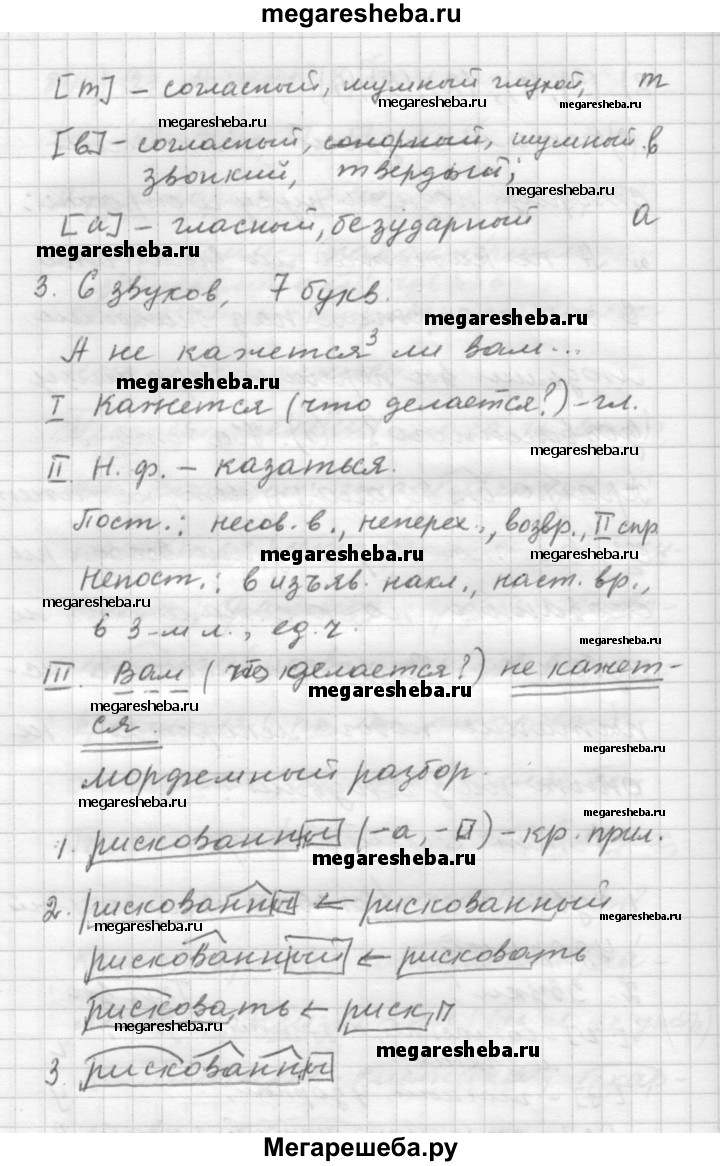 megaresheba.ru
[т] – согласный, шумный глухой, т
megaresheba.ru
megaresheba.ru
megaresheba.ru
[в] – согласный, сонорный, шумный в
звонкий, твердый;
megaresheba.ru
[а] – гласный, безударный а
megaresheba.ru
3. 6 звуков, 7 букв.
megaresheba.ru
А не кажется³ ли вам...
megaresheba.ru
I Кажется (что делается?) – гл.
megaresheba.ru
II. Н. ф. – казаться.
Пост.: несов. в., неперех., возвр., II спр
megaresheba.ru
megaresheba.ru
Непост.: в изъяв. накл., наст. вр.,
megaresheba.ru
megaresheba.ru
в 3-м л., ед. ч.
megaresheba.ru
III. Вам (что делается?) не кажет-
megaresheba.ru
megaresheba.ru
ся.
megaresheba.ru
Морфемный разбор.
megaresheba.ru
megaresheba.ru
1. рискованны (-а, -о) – кр. прил.
megaresheba.ru
2. рискованны ← рискованный
megaresheba.ru
megaresheba.ru
рискованный ← рисковать
рисковать ← риск
megaresheba.ru
megaresheba.ru
3. рискованны
Мегарешеба.ру